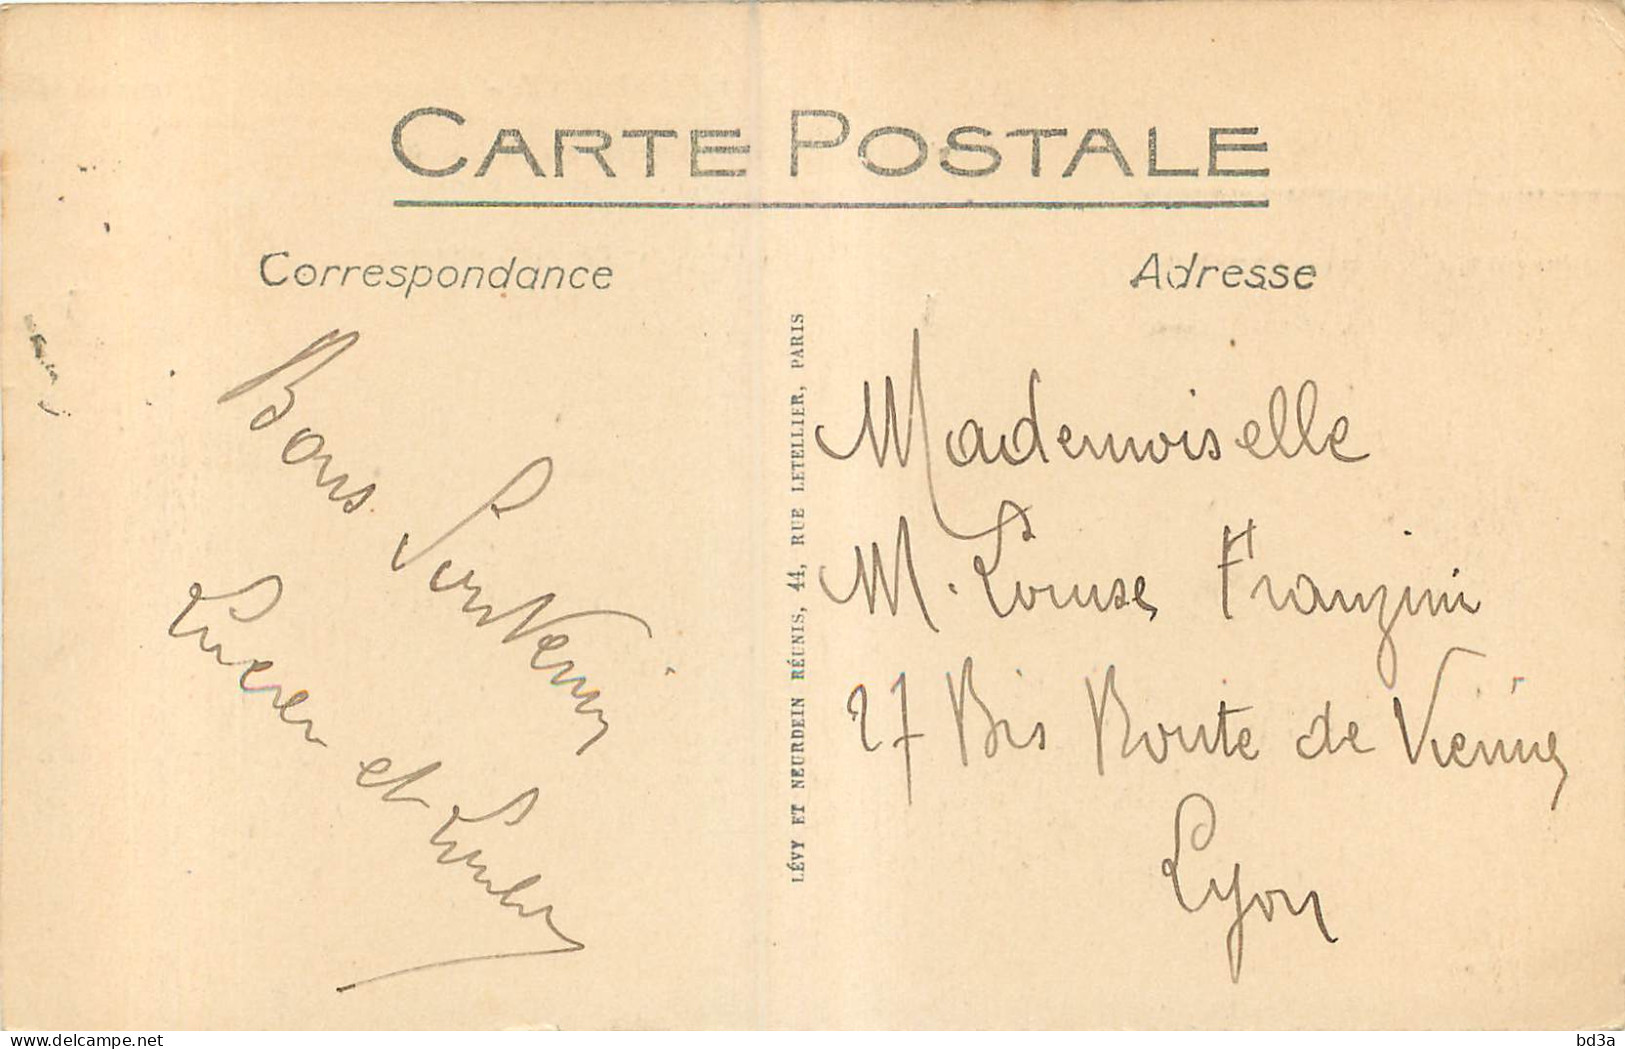 CARTE POSTALE
Correspondance
Adresse
Bons Souvenirs
Lucien et
LÉVY ET NEURDEIN RÉUNIS, 44, RUE LETELLIER, PARIS
Mademoiselle
M. Louise Franzini
27 Bis Route de Vienne
Lyon
delcampe.net
bd3a